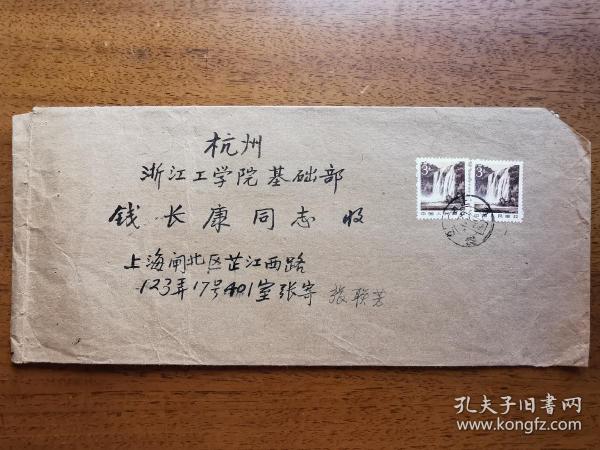 杭州
浙江工学院基础部
钱长康同志 收
上海闸北区芷江西路
123弄17号401室张寄 张联芳
3分
3分
中国人民邮政
中国人民邮政
孔夫子旧书网
www.kongfz.com